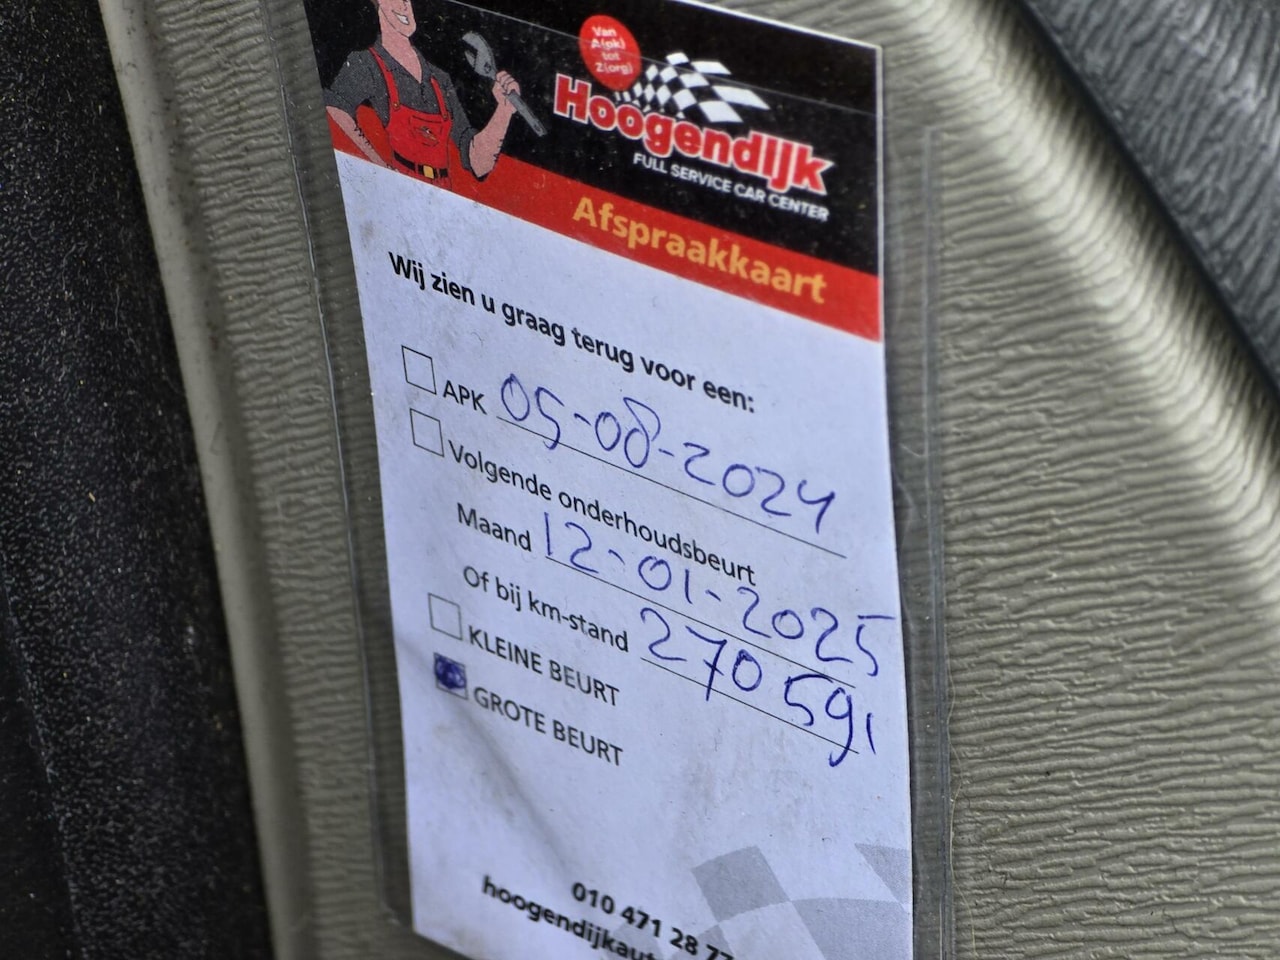 Van
A(pk)
tot
Z(org)
Hoogendijk
FULL SERVICE CAR CENTER
Afspraakkaart
Wij zien u graag terug voor een:
APK 05-08-2024
Volgende onderhoudsbeurt
Maand 12-01-2025
Of bij km-stand 270 591
KLEINE BEURT
GROTE BEURT
010 471 28 77
hoogendijkaut